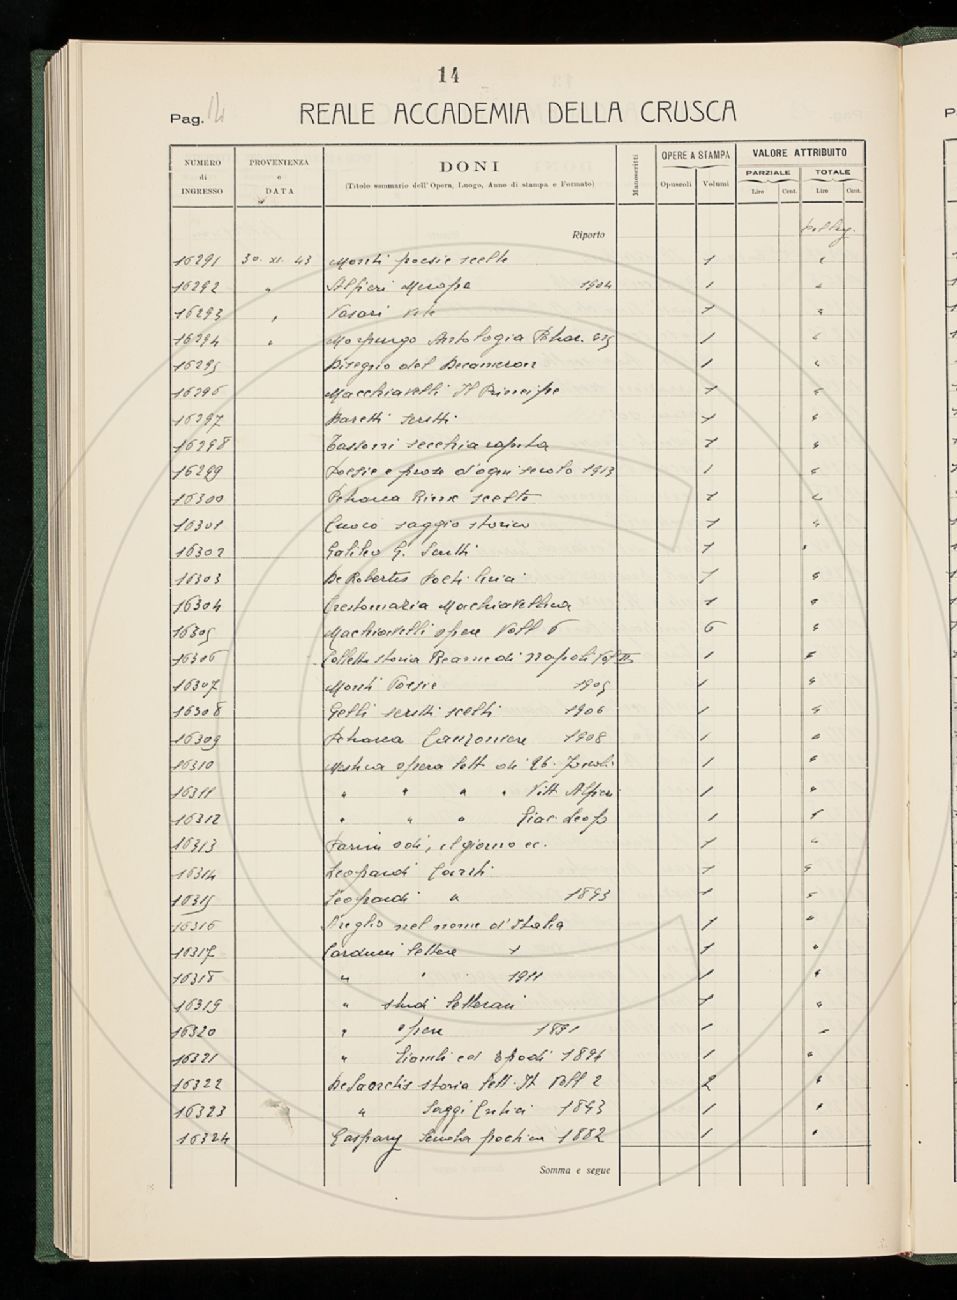 14
Pag. 14
REALE ACCADEMIA DELLA CRUSCA
NUMERO di INGRESSO PROVENIENZA e DATA DONI (Titolo sommario dell'Opera, Luogo, Anno di stampa e Formato) Manoscritti OPERE A STAMPA Opuscoli Volumi VALORE ATTRIBUITO PARZIALE Lire Cent. TOTALE Lire Cent.
Riporto
16291 30. XI. 43 Monti poesie scelte 1 "
16292 " Alfieri Merope 1904 1 "
16293 " Vasari Vite 1 "
16294 " Morpurgo Antologia 1 "
16295 Disegno del Decameron 1 "
16296 Macchiavelli Il Principe 1 "
16297 Baretti scritti 1 "
16298 Tassoni secchia rapita 1 "
16299 Poesie e prose d'ogni secolo 1913 1 "
16300 Petrarca Rime scelte 1 "
16301 Cuoco saggio storico 1 "
16302 Galileo G. Scritti 1 "
16303 De Robertis Poeti lirici 1 "
16304 Crestomazia Machiavellina 1 "
16305 Machiavelli opere Voll 6 6 "
16306 Colletta storia Reame di Napoli Vol II 1 "
16307 Monti Poesie 1905 1 "
16308 Gelli scritti scelti 1906 1 "
16309 Petrarca Canzoniere 1908 1 "
16310 Mestica opera lett. di 1 "
16311 " " " " Vitt. Alfieri 1 "
16312 " " " Giac. Leop 1 "
16313 Parini odi, il giorno ec. 1 "
16314 Leopardi Canti 1 "
16315 Leopardi " 1893 1 "
16316 nel nome d'Italia 1 "
16317 Carducci lettere 1 1 "
16318 " " 1911 1 "
16319 " studi letterari 1 "
16320 " opere 1891 1 "
16321 " Giambi ed Epodi 1894 1 "
16322 De Sanctis storia lett. It Voll 2 2 "
16323 " Saggi Critici 1893 1 "
16324 Gaspary Scuola poetica 1882 1 "
Somma e segue